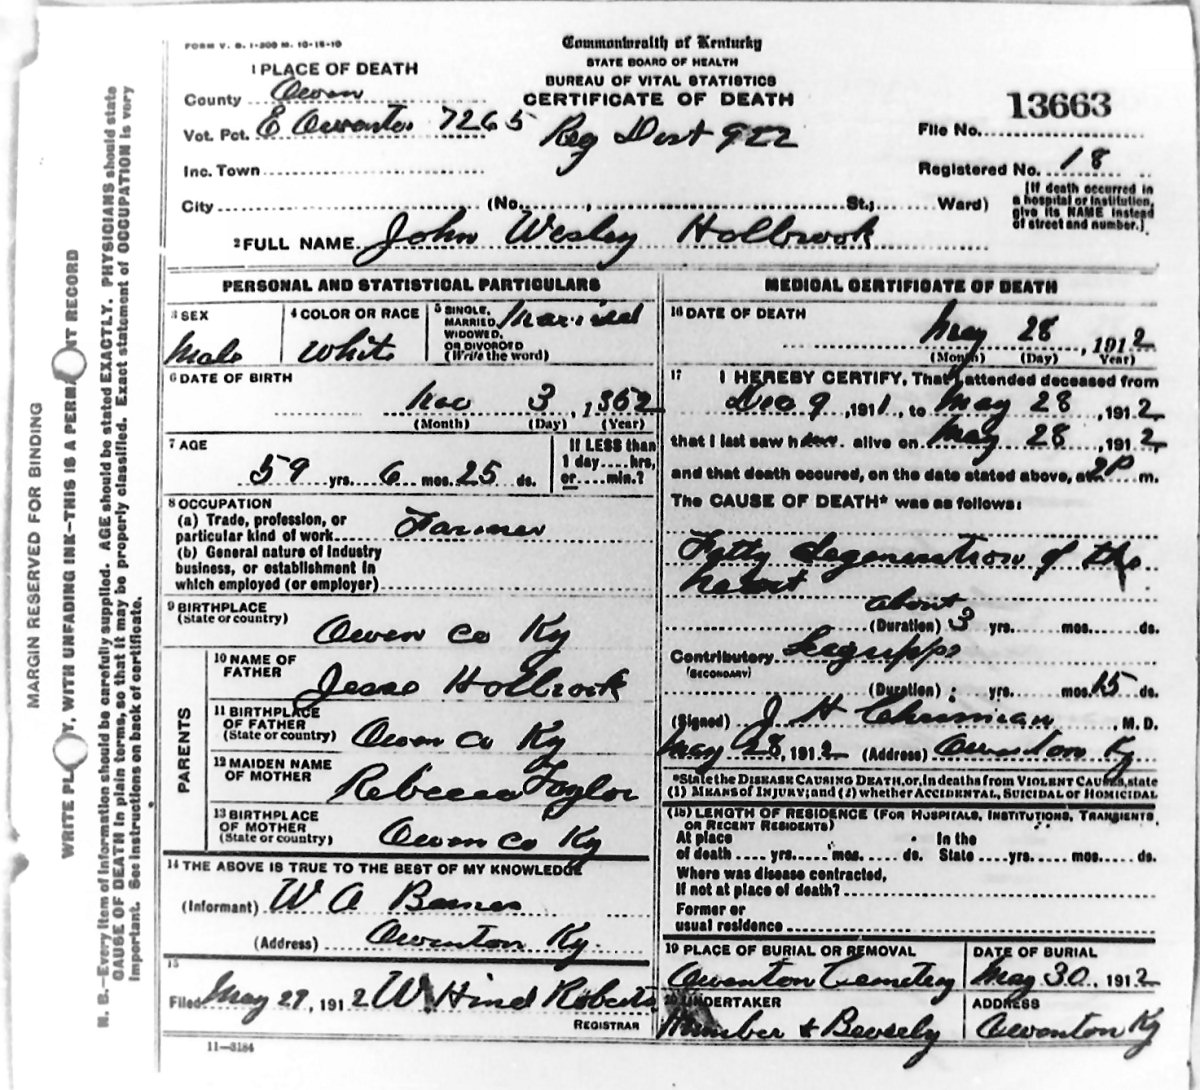 FORM V. S. 1-200 M. 10-18-10
Commonwealth of Kentucky
STATE BOARD OF HEALTH
BUREAU OF VITAL STATISTICS
CERTIFICATE OF DEATH
1 PLACE OF DEATH
County Owen
Vot. Pct. E Owenton 7265 Reg Dist 922
Inc. Town
City (No. , St.; Ward)
13663
File No.
Registered No. 18
[If death occurred in
a hospital or institution,
give its NAME instead
of street and number.]
2 FULL NAME John Wesley Holbrook
PERSONAL AND STATISTICAL PARTICULARS
3 SEX
Male
4 COLOR OR RACE
White
5 SINGLE,
MARRIED,
WIDOWED,
OR DIVORCED
(Write the word)
Married
6 DATE OF BIRTH
Nov 3, 1852
(Month) (Day) (Year)
7 AGE
59 yrs. 6 mos. 25 ds.
If LESS than
1 day....hrs,
or....min.?
8 OCCUPATION
(a) Trade, profession, or
particular kind of work Farmer
(b) General nature of industry
business, or establishment in
which employed (or employer)
9 BIRTHPLACE
(State or country)
Owen Co Ky
PARENTS
10 NAME OF
FATHER
Jesse Holbrook
11 BIRTHPLACE
OF FATHER
(State or country)
Owen Co Ky
12 MAIDEN NAME
OF MOTHER
Rebecca Taylor
13 BIRTHPLACE
OF MOTHER
(State or country)
Owen Co Ky
14 THE ABOVE IS TRUE TO THE BEST OF MY KNOWLEDGE
(Informant) W A
(Address) Owenton Ky.
15
Filed May 29, 1912 W Hind Roberts
REGISTRAR
11—3184
MEDICAL CERTIFICATE OF DEATH
16 DATE OF DEATH
May 28, 1912
(Month) (Day) (Year)
17 I HEREBY CERTIFY, That I attended deceased from
Dec 9, 1911, to May 28, 1912,
that I last saw him alive on May 28, 1912,
and that death occured, on the date stated above, at 2P m.
The CAUSE OF DEATH* was as follows:
Fatty degeneration of the
heart
about
(Duration) 3 yrs. mos. ds.
Contributory Lagrippe
(SECONDARY)
(Duration) yrs. mos. 15 ds.
(Signed) J H Chrisman, M. D.
May 28, 1912 (Address) Owenton Ky
*State the DISEASE CAUSING DEATH, or, in deaths from VIOLENT CAUSES, state
(1) MEANS of INJURY; and (2) whether ACCIDENTAL, SUICIDAL or HOMICIDAL
(18) LENGTH OF RESIDENCE (FOR HOSPITALS, INSTITUTIONS, TRANSIENTS
OR RECENT RESIDENTS)
At place In the
of death .... yrs. .... mos. .... ds. State .... yrs. .... mos. .... ds.
Where was disease contracted,
If not at place of death?
Former or
usual residence
19 PLACE OF BURIAL OR REMOVAL
Owenton Cemetery
DATE OF BURIAL
May 30, 1912
20 UNDERTAKER
& Beverly
ADDRESS
Owenton Ky
MARGIN RESERVED FOR BINDING
WRITE PL Y, WITH UNFADING INK—THIS IS A PERMA NT RECORD
N. B.—Every item of information should be carefully supplied. AGE should be stated EXACTLY. PHYSICIANS should state
CAUSE OF DEATH in plain terms, so that it may be properly classified. Exact statement of OCCUPATION is very
important. See instructions on back of certificate.